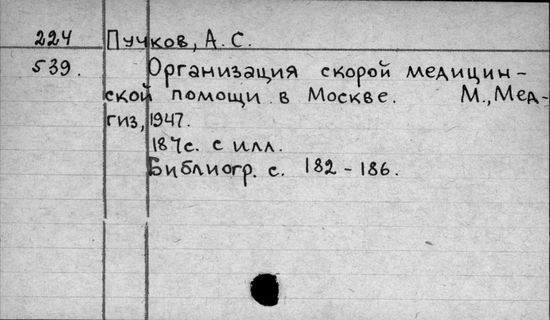 224 Пучков, А. С.
539. Организация скорой медицин-
ской помощи в Москве. М., Мед-
гиз, 1947.
187с. с илл.
Библиогр. с. 182 - 186.